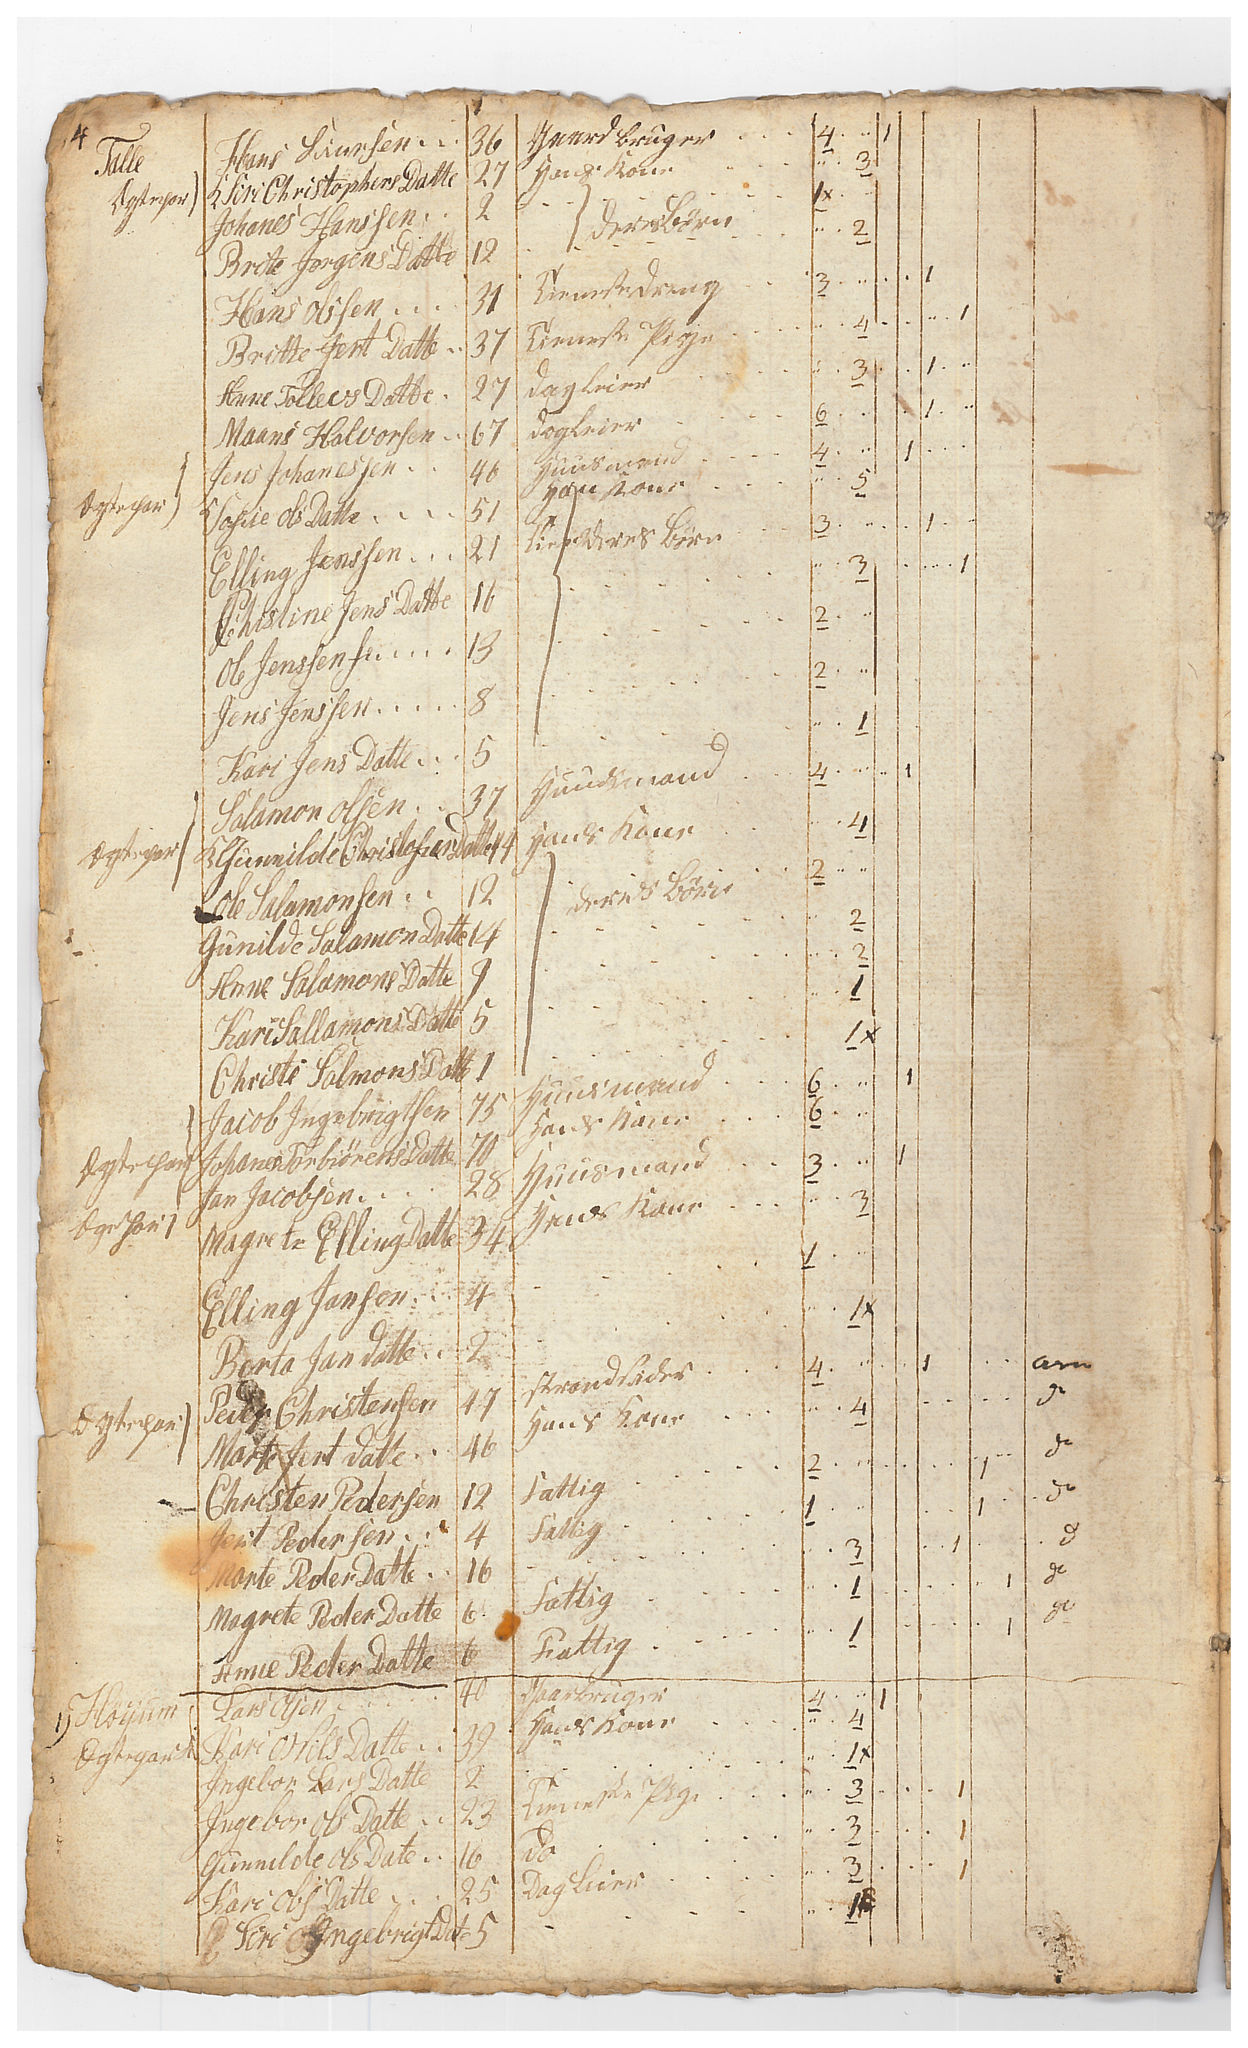 4
Talle Hans Laursen 36 Gaard bruger 4 " 1
Egtepar Siri Christophers Datte 27 Hans Kone " 3
Johanes Hanssen 2 1x "
Brite Jørgens Datte 12 deres Børn " 2
Hans Olssen 31 Tieneste dreng 3 " 1
Britte Jert Datte 37 Tieneste Pige " 4 1
Anne Tollevs Datte 27 dagleier " 3 1 "
Maans Halvorsen 67 dagleier 6 1 "
Jens Johanessen 46 Huusmand 4 " 1
Egtepar Sophie Ols Datte 51 Hans Kone " 5
Elling Jenssen 21 deres Børn 3 " 1
Christine Jens Datte 16 " 3 1
Ole Jenssen 13 2 "
Jens Jenssen 8 2 "
Kari Jens Datte 5 " 1
Salamon Olsen 37 Huusmand 4 " 1
Egtepar Gunnilde Christopher Datte 44 Hans Kone " 4
Ole Salamonsen 12 deres Børn 2 "
Gunilde Salamon Datte 14 " 2
Anne Salamons Datte 9 " 2
Kari Sallamons Datte 5 " 1
Christi Salmons Datte 1 1x
Jacob Ingebrigtsen 75 Huusmand 6 " 1
Egtepar Johanes Torbiørens Datte 70 Hans Kone 6 "
Jan Jacobsen 28 Huusmand 3 " 1
Magrete Elling Datte 34 Hans Kone " 3
Elling Jansen 4 1 "
Borta Jan datte 2 " 1x
Peder Christensen 47 strandsider 4 " 1 arm
Egtepar Marte Jert datte 46 Hans Kone " 4 do
Christen Pedersen 12 Fattig 2 " 1 do
Jert Pedersen 4 Fattig 1 " 1 do
Marte Peder Datte 16 3 1 d
Magrete Peder Datte 6 Fattig " 1 1 do
Anne Peder Datte 6 Fattig " 1 1 do
Høyum Lars Olsen 40 Gaarbruger 4 " 1
Egtepar Kari Nils Datte 39 Hans Kone " 4
Ingebor Lars Datte 2 " 1x
Ingebor Ols Datte 23 Tieneste Pige " 3 1
Gunnilde Ols Date 16 do " 3 1
Kari Ols Datte 25 Dagleier " 3 1
Siri Ingebrigt Dat 5 " 1